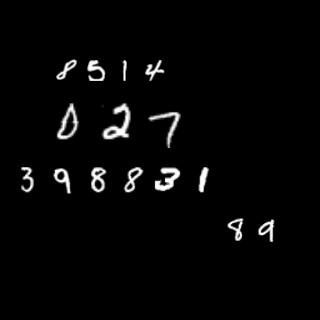 8 5 1 4
0 2 7
3 9 8 8 3 1
8 9